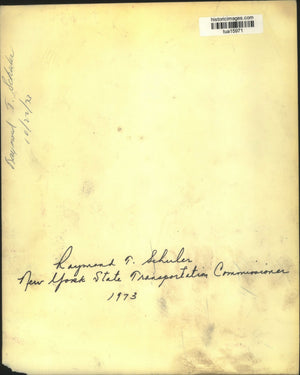 historicimages.com
tua15971
Raymond T. Schuler
Raymond T. Schuler
New York State Transportation Commissioner
1973